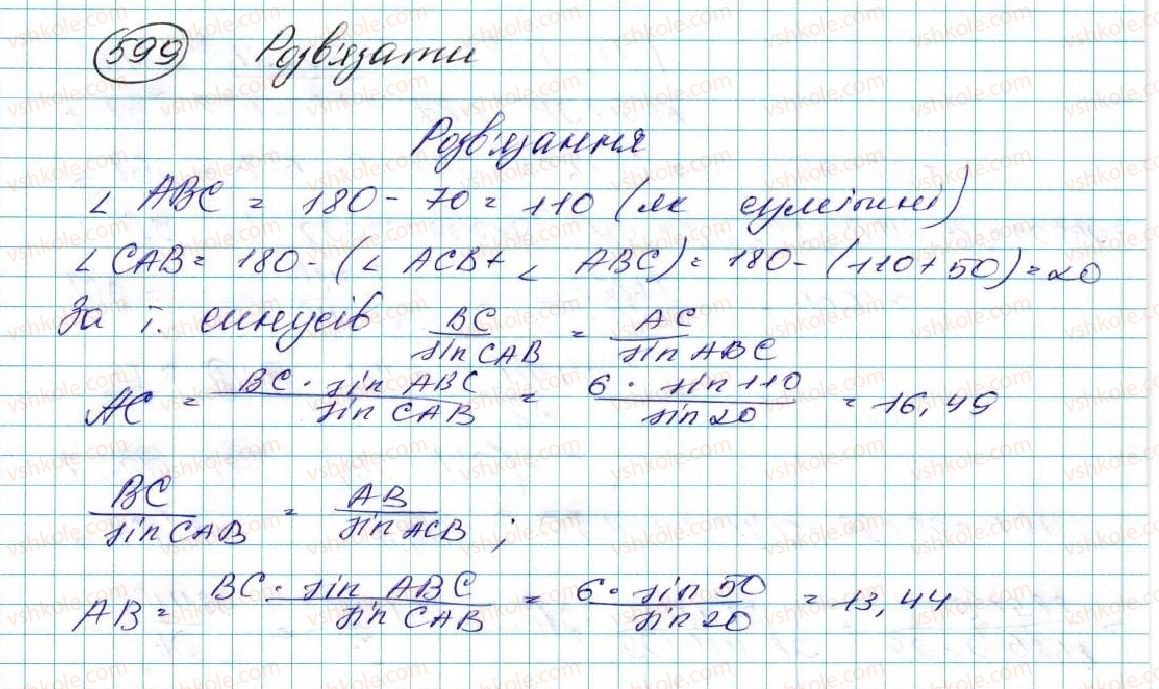 599 Розв'язати
Розв'язання
∠ ABC = 180 - 70 = 110 (як суміжні)
∠ CAB = 180 - (∠ ACB + ∠ ABC) = 180 - (110 + 50) = 20
За т. синусів BC / sin CAB = AC / sin ABC
AC = BC · sin ABC / sin CAB = 6 · sin 110 / sin 20 = 16,49
BC / sin CAB = AB / sin ACB ;
AB = BC · sin ABC / sin CAB = 6 · sin 50 / sin 20 = 13,44
vshkole.com